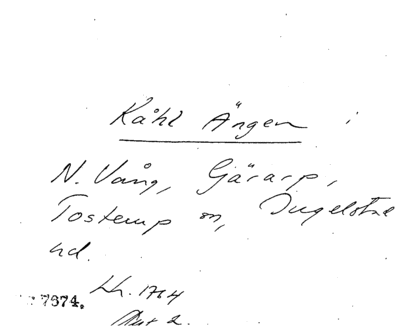 Kåhl Ängen i
N. Vång, Gärarp,
Tosterup sn, Ingelstad
hd.
Lh. 1764
7674. Akt 2.